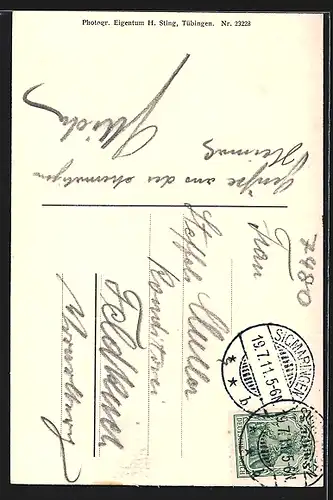 Photogr. Eigentum H. Sting, Tübingen. Nr. 23228
Grüße aus der ehemaligen
Heimat
7480
Frau
Müller
Konditorei
Feldkirch
Vorarlberg
SIGMARINGEN
19.7.11.5-6N.